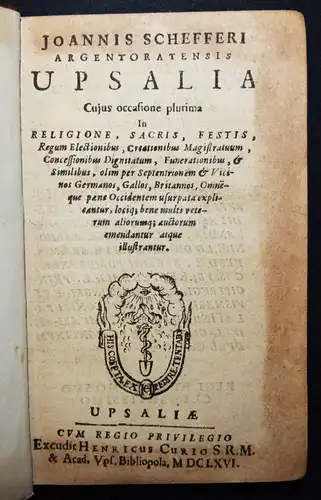 JOANNIS SCHEFFERI
ARGENTORATENSIS
UPSALIA
Cujus occasione plurima
In
RELIGIONE, SACRIS, FESTIS,
Regum Electionibus, Creationibus Magistratuum,
Concessionibus Dignitatum, Funerationibus, &
Similibus, olim per Septentrionem & Vici-
nos Germanos, Gallos, Britannos, Omnē-
que pæne Occidentem usurpata expli-
cantur, lociq; bene multi vete-
rum aliorumq; auctorum
emendantur atque
illustrantur.
HIS COEPTA EX PEDIRE TENTAB
UPSALIÆ
CVM REGIO PRIVILEGIO
Excudit HENRICUS CURIO S.R.M.
& Acad. Vps. Bibliopola, MDCLXVI.